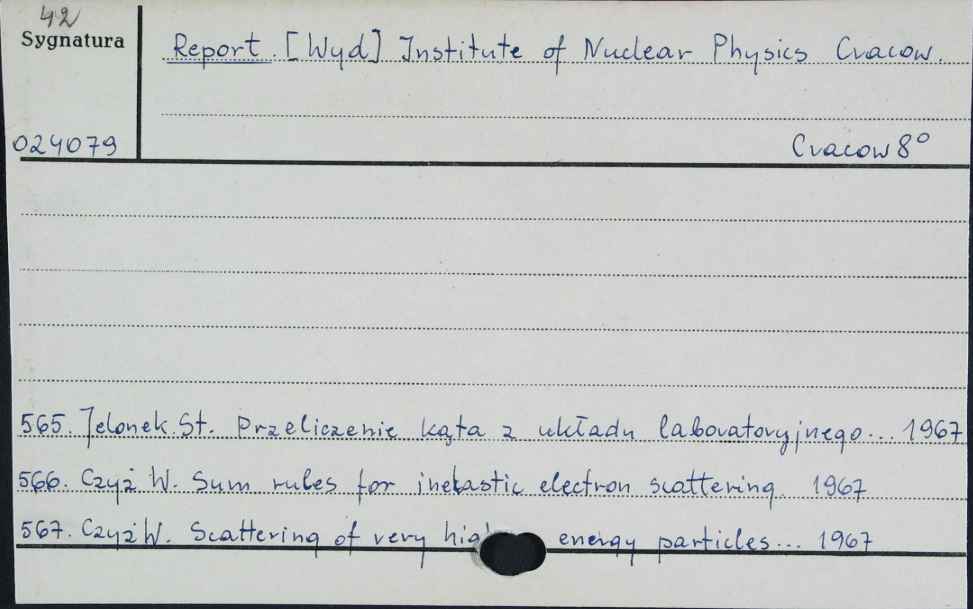 42
Sygnatura
Report. [Wyd] Institute of Nuclear Physics Cracow.
024079
Cracow 8°
565. Jelonek St. Przeliczenie kąta z układu laboratoryjnego... 1967
566. Czyż W. Sum rules for inelastic electron scattering. 1967
567. Czyż W. Scattering of very high energy particles... 1967